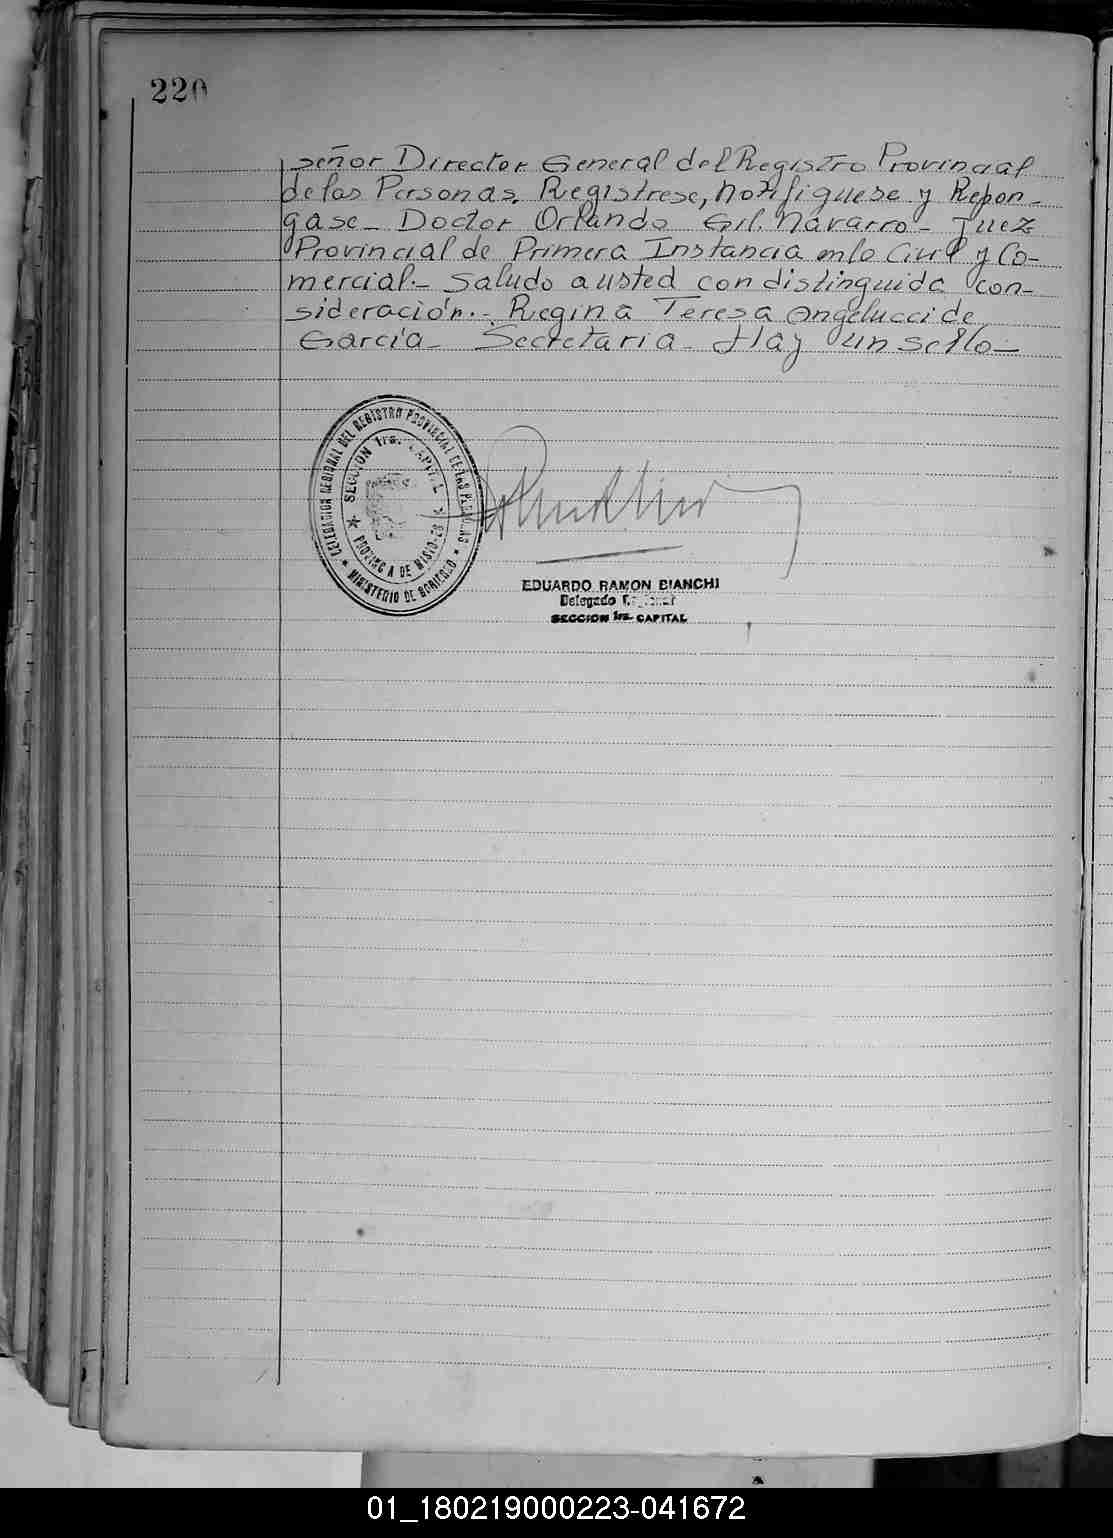 220
señor Director General del Registro Provincial
de las Personas. Registrese, notifiquese y Repon-
gase_ Doctor Orlando Gil. Navarro_ Juez
Provincial de Primera Instancia en lo Civil y Co-
mercial._ Saludo a usted con distinguida con-
sideración._ Regina Teresa Angelucci de
García_ Secretaria_ Hay un sello_
DELEGACION REGIONAL DEL REGISTRO PROVINCIAL DE LAS PERSONAS
* MINISTERIO DE GOBIERNO *
SECCION 1ra. CAPITAL
* PROVINCIA DE MISIONES *
EDUARDO RAMON BIANCHI
Delegado Regional
SECCION 1ra. CAPITAL
01_180219000223-041672